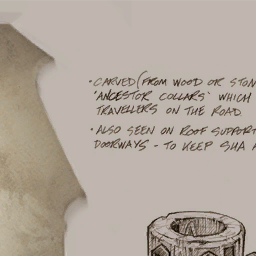 • CARVED (FROM WOOD OR STON
'ANCESTOR COLLARS' WHICH
TRAVELLERS ON THE ROAD.
• ALSO SEEN ON ROOF SUPPORT
DOORWAYS - TO KEEP SHA A